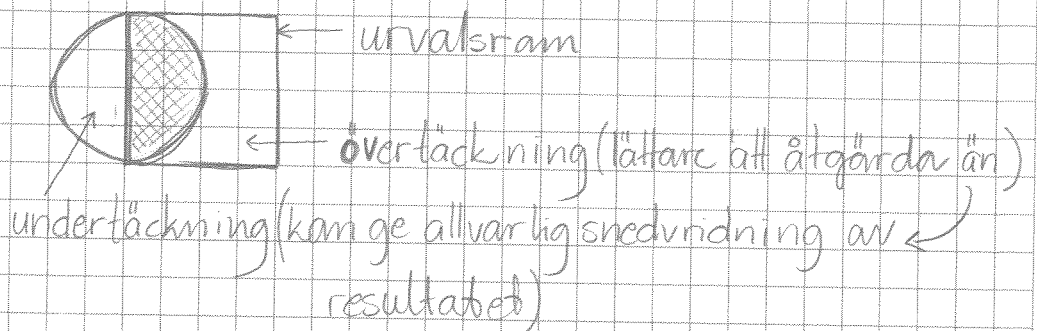 urvalsram
övertäckning (lättare att åtgärda än)
undertäckning (kan ge allvarlig snedvridning av
resultatet)